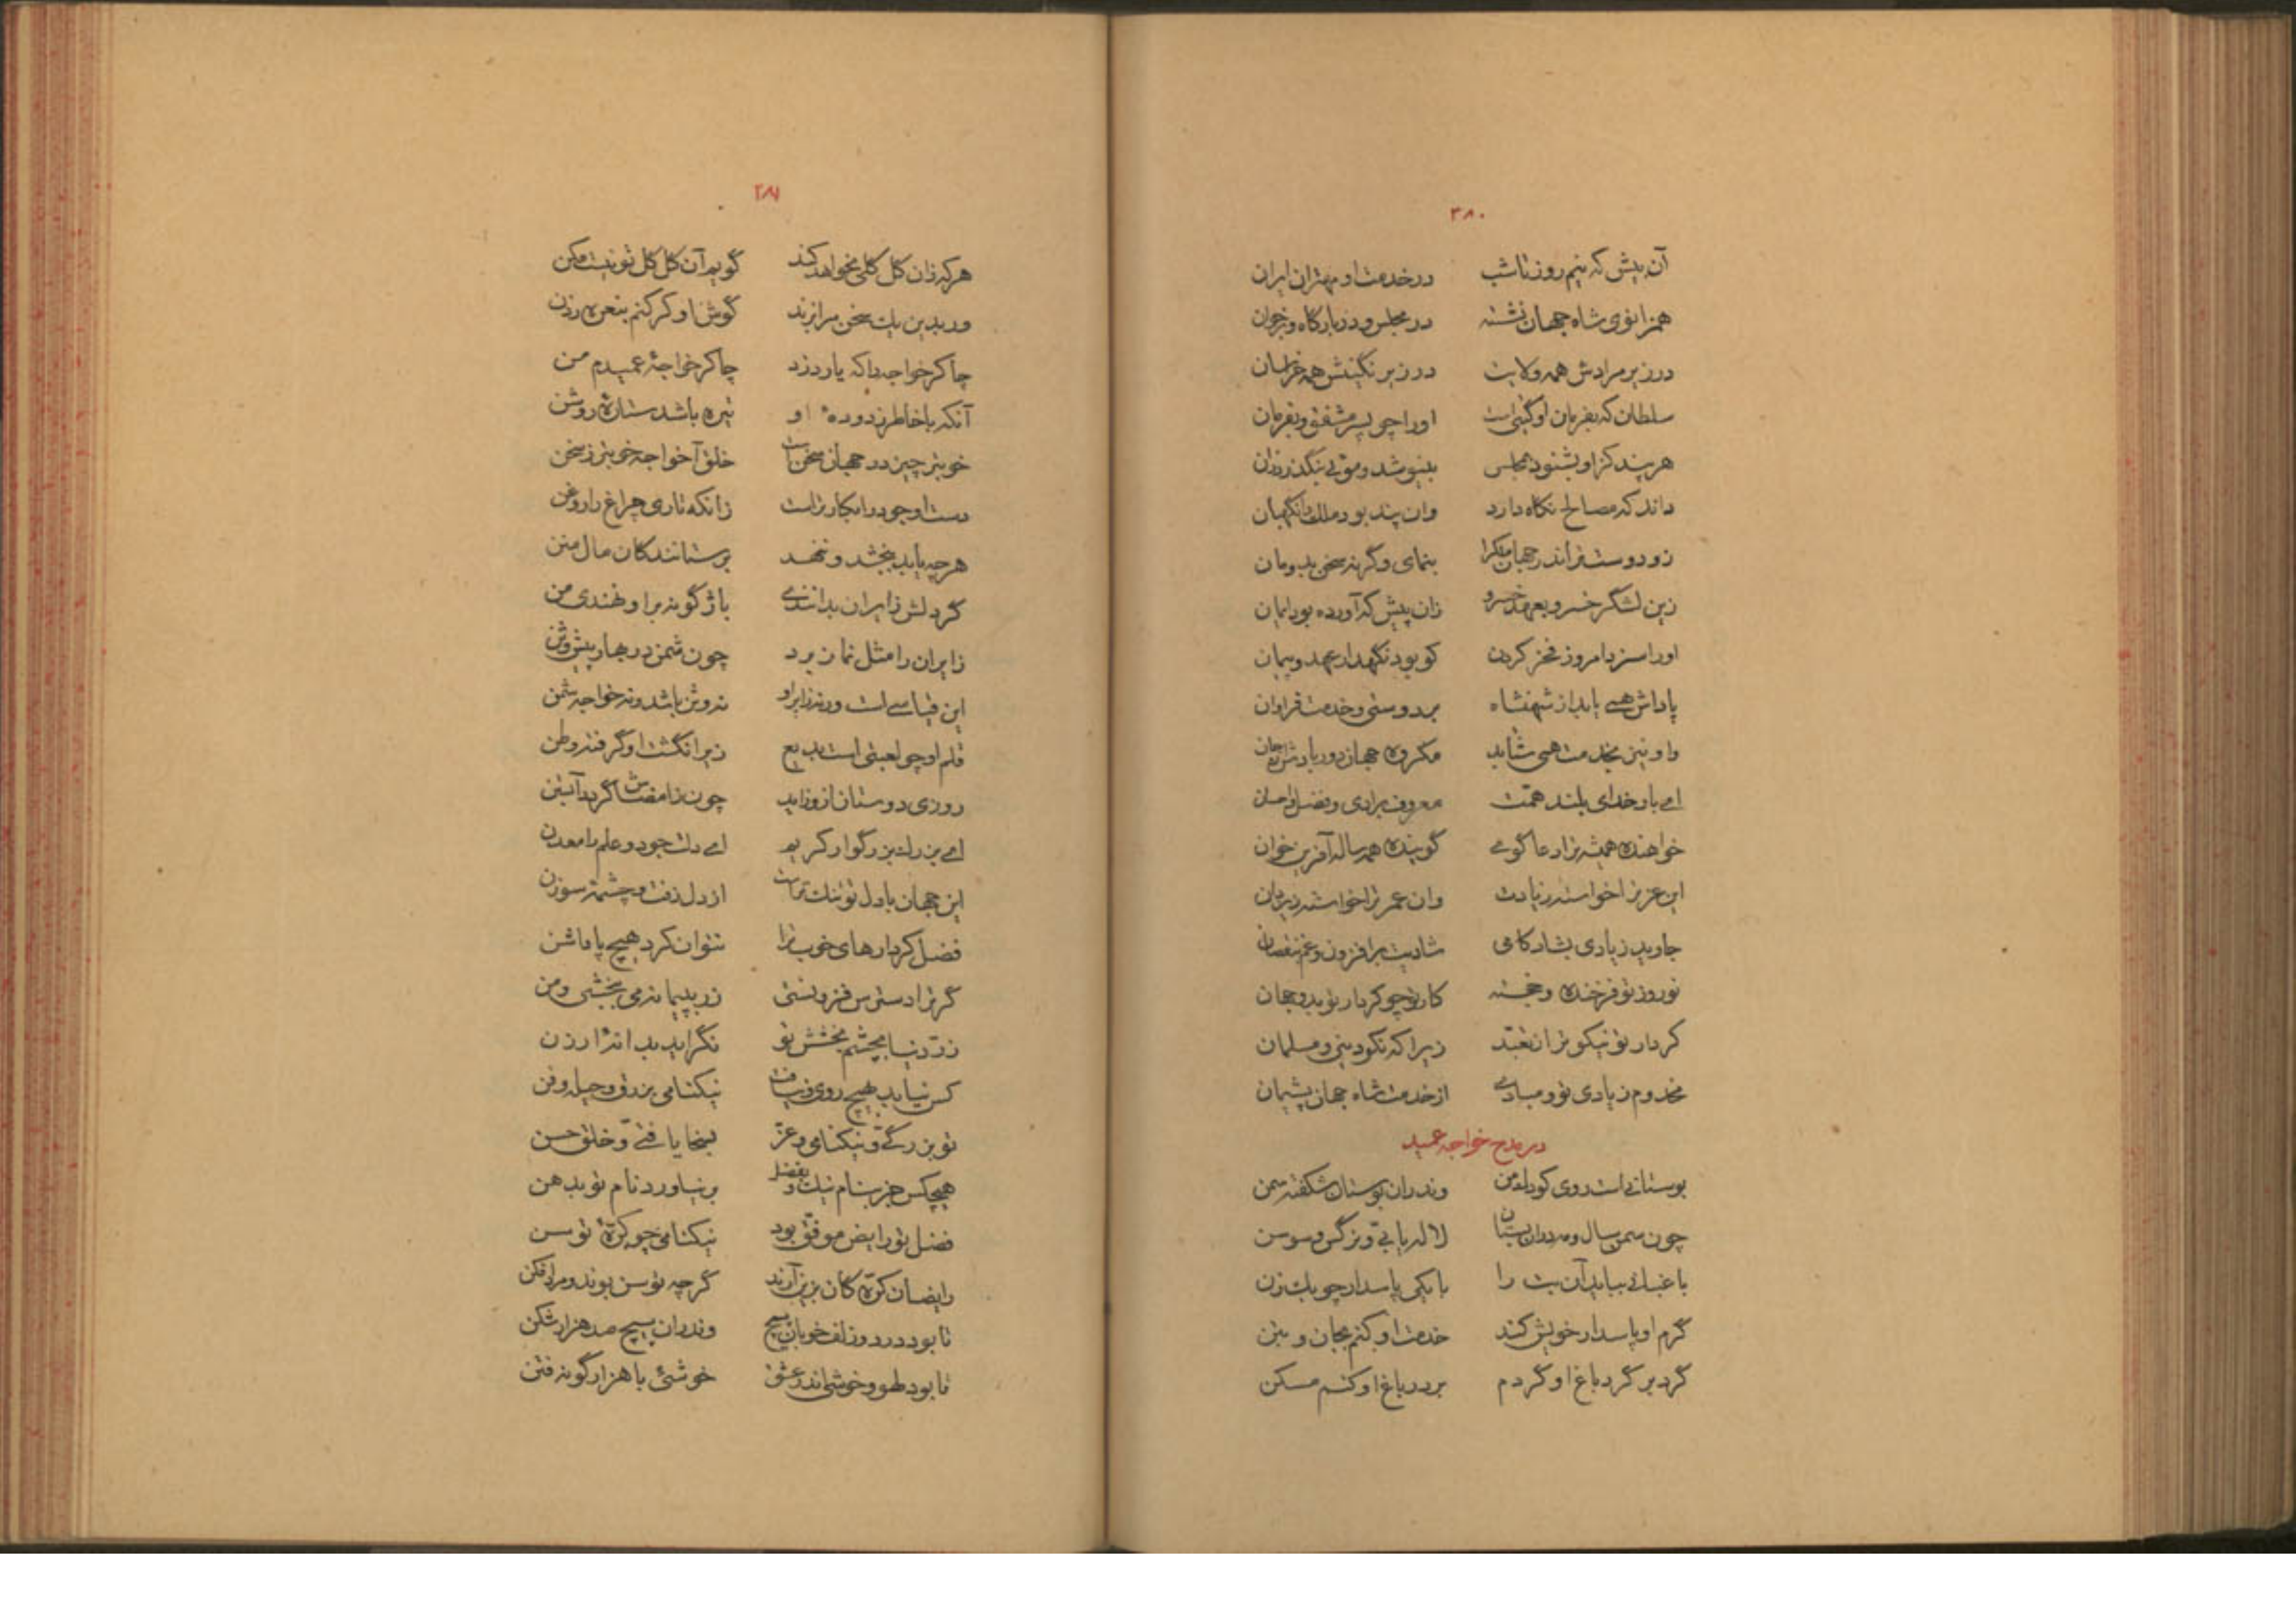 ۳۸۰
آن پیش که نیم روز تا شب در خدمت او مهتران ایران
همزانوی شاه جهان نشسته در مجلس و در بارگاه و بر خوان
در زیر مرادش همه ولایت در زیر نگینش همه خراسان
سلطان که بفرمان او گیتی است او را چو پسر مشفق و بفرمان
هر پند کز او بشنود بمجلس بنیوشد و موئی بنگذرد زان
داند که مصالح نگاه دارد وان پند بود ملک را نگهبان
زو دوست‌تر اندر جهان ملک را بنمای وگرنه سخن بدو مان
زین لشگر خسرو بعهد خسرو زان پیش که آورده بود ایمان
او را سزد امروز فخر کردن کو بود نگهدار عهد و پیمان
پاداش همی یابد از شهنشاه بر دوستی و خدمت فراوان
واو نیز بخدمت همی شاید مکروه جهان دور بادش از جان
ای بار خدای بلند همت معروف برادی و فضل و احسان
خواهنده همیشه ترا دعا گوی گوینده همه ساله آفرین خوان
این عز ترا خواسته زیادت وان عمر ترا خواسته ز یزدان
جاوید زیادی بشاد کامی شادیت برافزون و غم بنقصان
نوروز تو فرخنده و خجسته کار تو چو کردار تو بدو جهان
کردار تو نیکوتر از تعبد زیرا که نکو دینی و مسلمان
مخدوم زیادی تو و مبادی از خدمت شاه جهان پشیمان
در مدح خواجه عمید
بوستانی است روی کودک من وندران بوستان شکفته سمن
چون سمن سال و مه دران بستان لاله یابی و نرگس و سوسن
باغبانی بباید آن بت را بایکی پاسدار چوبک زن
گرم او پاسدار خویش کند خدمت او کنم بجان و بتن
گرد بر گرد باغ او گردم بر در باغ او کنم مسکن
۳۸۱
هر که زان گل گلی بخواهد کند گویم آن گل گل تو نیست مکن
ور بدین یک سخن مرا بزند گوش او کر کنم بنعره زدن
چاکر خواجه را که یارد زد چاکر خواجهٔ عمیدم من
آنکه با خاطر زدودهٔ او تیره باشد ستارهٔ روشن
خوبتر چیز در جهان سخن است خلق آن خواجه خوبتر ز سخن
دست او جود را بکارتر است زانکه تاری چراغ را روغن
هر چه یابد ببخشد و ننهد بر ستانندگان مال منن
گرد لش زایران بدانندی باژگونه بر او نهندی من
زایران را مثل نماز برد چون شمن در بهار پیش وثن
این قیاسی است ورنه زایر او نه وثن باشد و نه خواجه شمن
قلم او چو لعبتی است بدیع زیر انگشت او گرفته وطن
روزی دوستان ازو زاید چون ز امضاش گردد آبستن
ای بزرگ بزرگوار کریم ای دلت جود و علم را معدن
این جهان با دل تو تنگ‌تر است از دل زفت و چشمهٔ سوزن
فضل کردارهای خوب ترا نتوان کرد هیچ پاداشن
گر ترا دسترس فزونستی زر بپیمانه می ببخشی و من
زر دنیا بچشم بخشش تو نگراید بد اندٔ ارزن
کس نیابد بهیچ روی و نیافت نیکنامی بزرق و حیله و فن
تو بزرگی و نیکنامی و عز بسخا یافتی و خلق حسن
هیچکس جز بنام نیک و بفضل بر نیاورد نام تو بدهن
فضل تو رایض موفق بود نیکنامی چو کرهٔ توسن
رایضان کره کان بزین آرند گر چه توسن بوند و مرد افکن
تا بود در دو زلف خوبان پیچ وندران پیچ صد هزار شکن
تا بود طهو و خوشی اندر عشق خوشئی با هزار گونه فتن